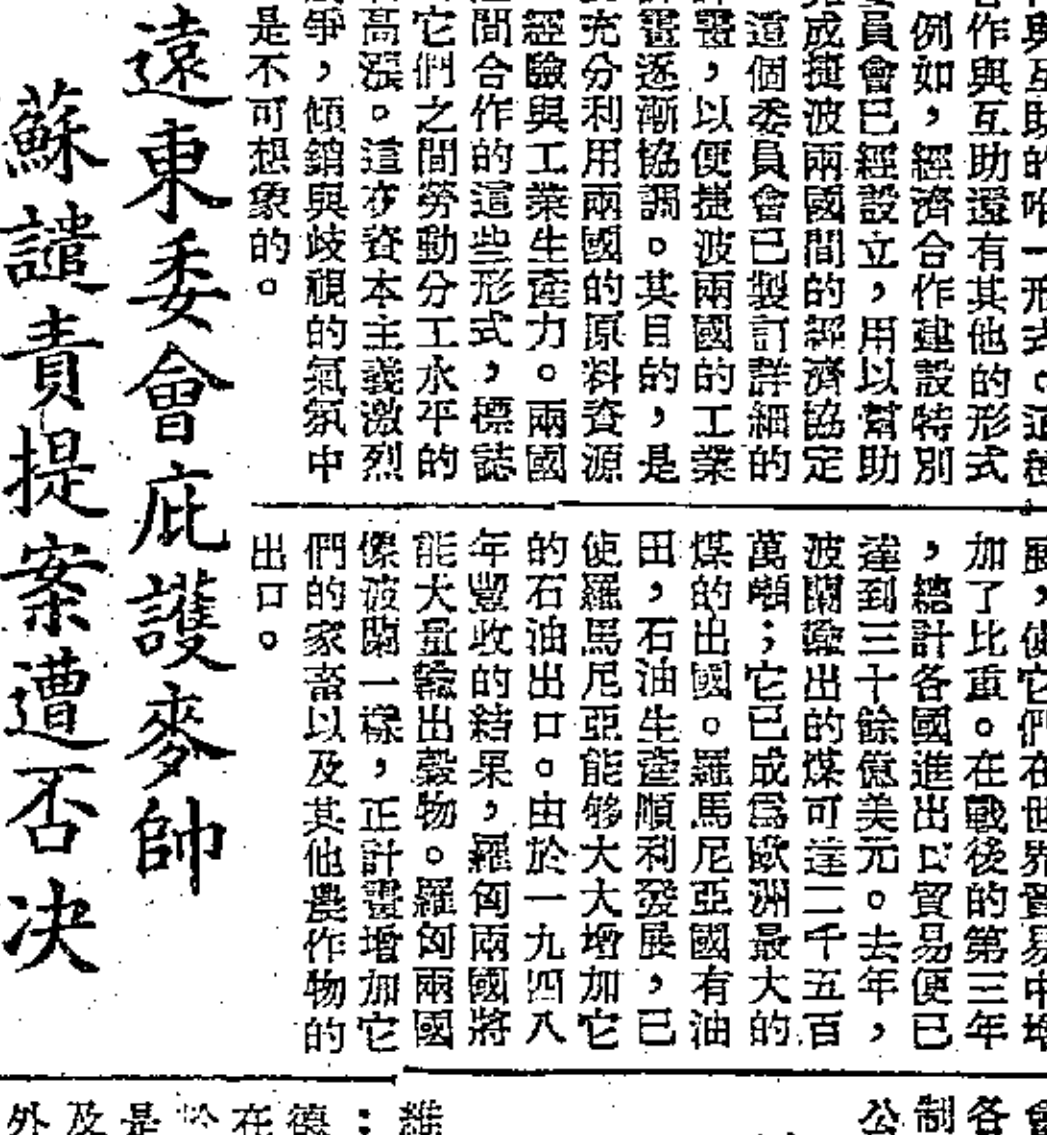 作與互助還有其他的形式
例如,經濟合作建設特別
員會已經設立,用以幫助
成捷波兩國間的經濟協定
這個委員會已製訂詳細的
畫,以便捷波兩國的工業
畫逐漸協調。其目的,是
充分利用兩國的原料資源
經驗與工業生產力。兩國
間合作的這些形式,標誌
它們之間勞動分工水平的
高漲。這在資本主義激烈
爭,傾銷與歧視的氣氛中
是不可想象的。
展,使它們在世界貿易中增
加了比重。在戰後的第三年
,總計各國進出口貿易便已
達到三十餘億美元。去年,
波蘭輸出的煤可達二千五百
萬噸;它已成爲歐洲最大的
煤的出國。羅馬尼亞國有油
田,石油生產順利發展,已
使羅馬尼亞能够大大增加它
的石油出口。由於一九四八
年豐收的結果,羅匈兩國將
能大量輸出穀物。羅匈兩國
像波蘭一樣,正計畫增加它
們的家畜以及其他農作物的
出口。
遠東委會庇護麥帥
蘇譴責提案遭否决